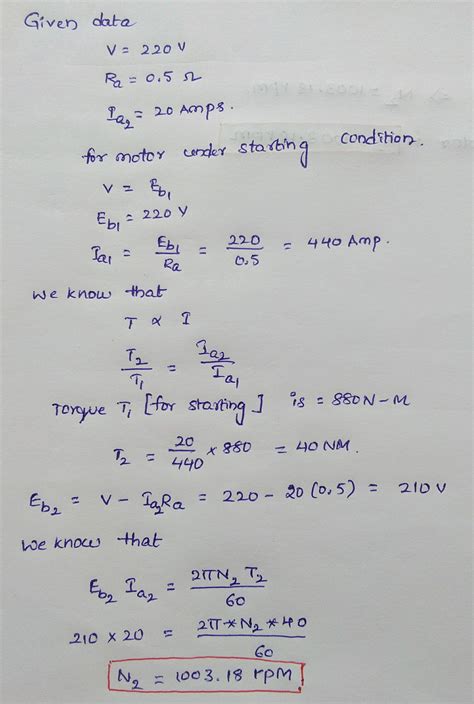 Given data
V = 220 V
Ra = 0.5 Ω
Ia2 = 20 Amps.
for motor under starting condition.
V = Eb1
Eb1 = 220 V
Ia1 = Eb1/Ra = 220/0.5 = 440 Amp.
We know that
T ∝ I
T2/T1 = Ia2/Ia1
Torque T1 [for starting] is = 880 N-M
T2 = 20/440 × 880 = 40 NM.
Eb2 = V - Ia2Ra = 220 - 20 (0.5) = 210 V
We know that
Eb2 Ia2 = 2πN2 T2/60
210 × 20 = 2π*N2*40/60
N2 = 1003.18 rpm